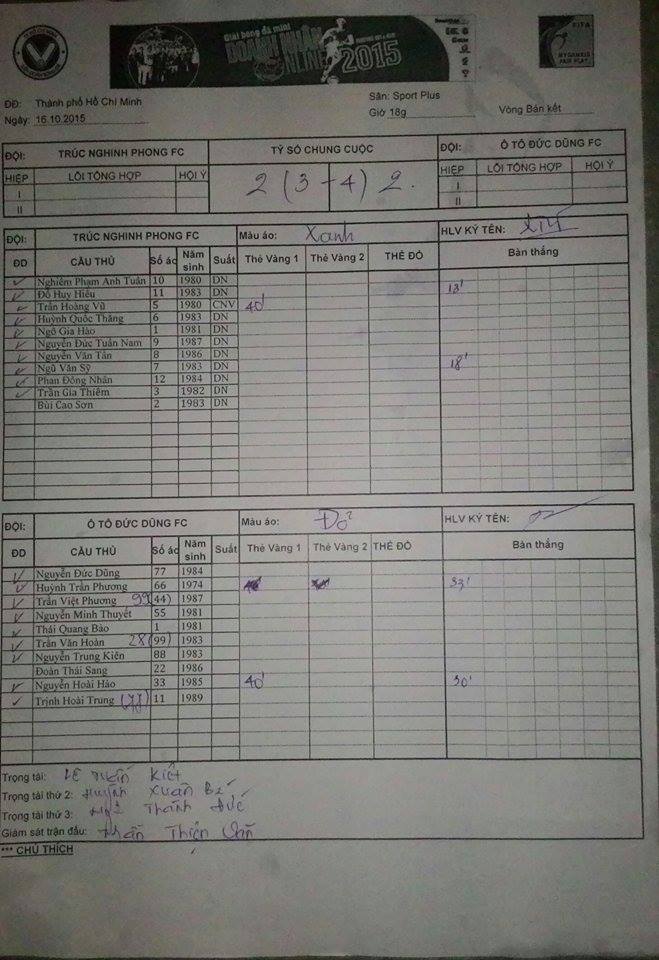 Giải bóng đá mini
DOANH NHÂN
ONLINE 2015
FIFA
MY GAME IS
FAIR PLAY
ĐĐ: Thành phố Hồ Chí Minh
Sân: Sport Plus
Ngày: 16.10.2015
Giờ 18g
Vòng Bán kết
ĐỘI: TRÚC NGHINH PHONG FC TỶ SỐ CHUNG CUỘC ĐỘI: Ô TÔ ĐỨC DŨNG FC
HIỆP LỖI TỔNG HỢP HỘI Ý 2 (3 - 4) 2 HIỆP LỖI TỔNG HỢP HỘI Ý
I I
II II
ĐỘI: TRÚC NGHINH PHONG FC Màu áo: Xanh HLV KÝ TÊN:
ĐD CẦU THỦ Số áo Năm sinh Suất Thẻ Vàng 1 Thẻ Vàng 2 THẺ ĐỎ Bàn thắng
Nghiêm Phạm Anh Tuấn 10 1980 DN
Đỗ Huy Hiếu 11 1983 DN 13'
Trần Hoàng Vũ 5 1980 CNV 40'
Huỳnh Quốc Thắng 6 1983 DN
Ngô Gia Hào 1 1981 DN
Nguyễn Đức Tuấn Nam 9 1987 DN
Nguyễn Văn Tấn 8 1986 DN
Ngũ Văn Sỹ 7 1983 DN 18'
Phan Đông Nhân 12 1984 DN
Trần Gia Thiêm 3 1982 DN
Bùi Cao Sơn 2 1983 DN
ĐỘI: Ô TÔ ĐỨC DŨNG FC Màu áo: Đỏ HLV KÝ TÊN:
ĐD CẦU THỦ Số áo Năm sinh Suất Thẻ Vàng 1 Thẻ Vàng 2 THẺ ĐỎ Bàn thắng
Nguyễn Đức Dũng 77 1984
Huỳnh Trần Phương 66 1974 33'
Trần Việt Phương 99 (44) 1987
Nguyễn Minh Thuyết 55 1981
Thái Quang Bảo 1 1981
Trần Văn Hoàn 28 (99) 1983
Nguyễn Trung Kiên 88 1983
Đoàn Thái Sang 22 1986
Nguyễn Hoài Hảo 33 1985 40' 30'
Trịnh Hoài Trung 11 1989
Trọng tài: Lê Tuấn Kiệt
Trọng tài thứ 2: Huỳnh Xuân Bé
Trọng tài thứ 3: Thành Đức
Giám sát trận đấu: Phan Thiện
*** CHÚ THÍCH